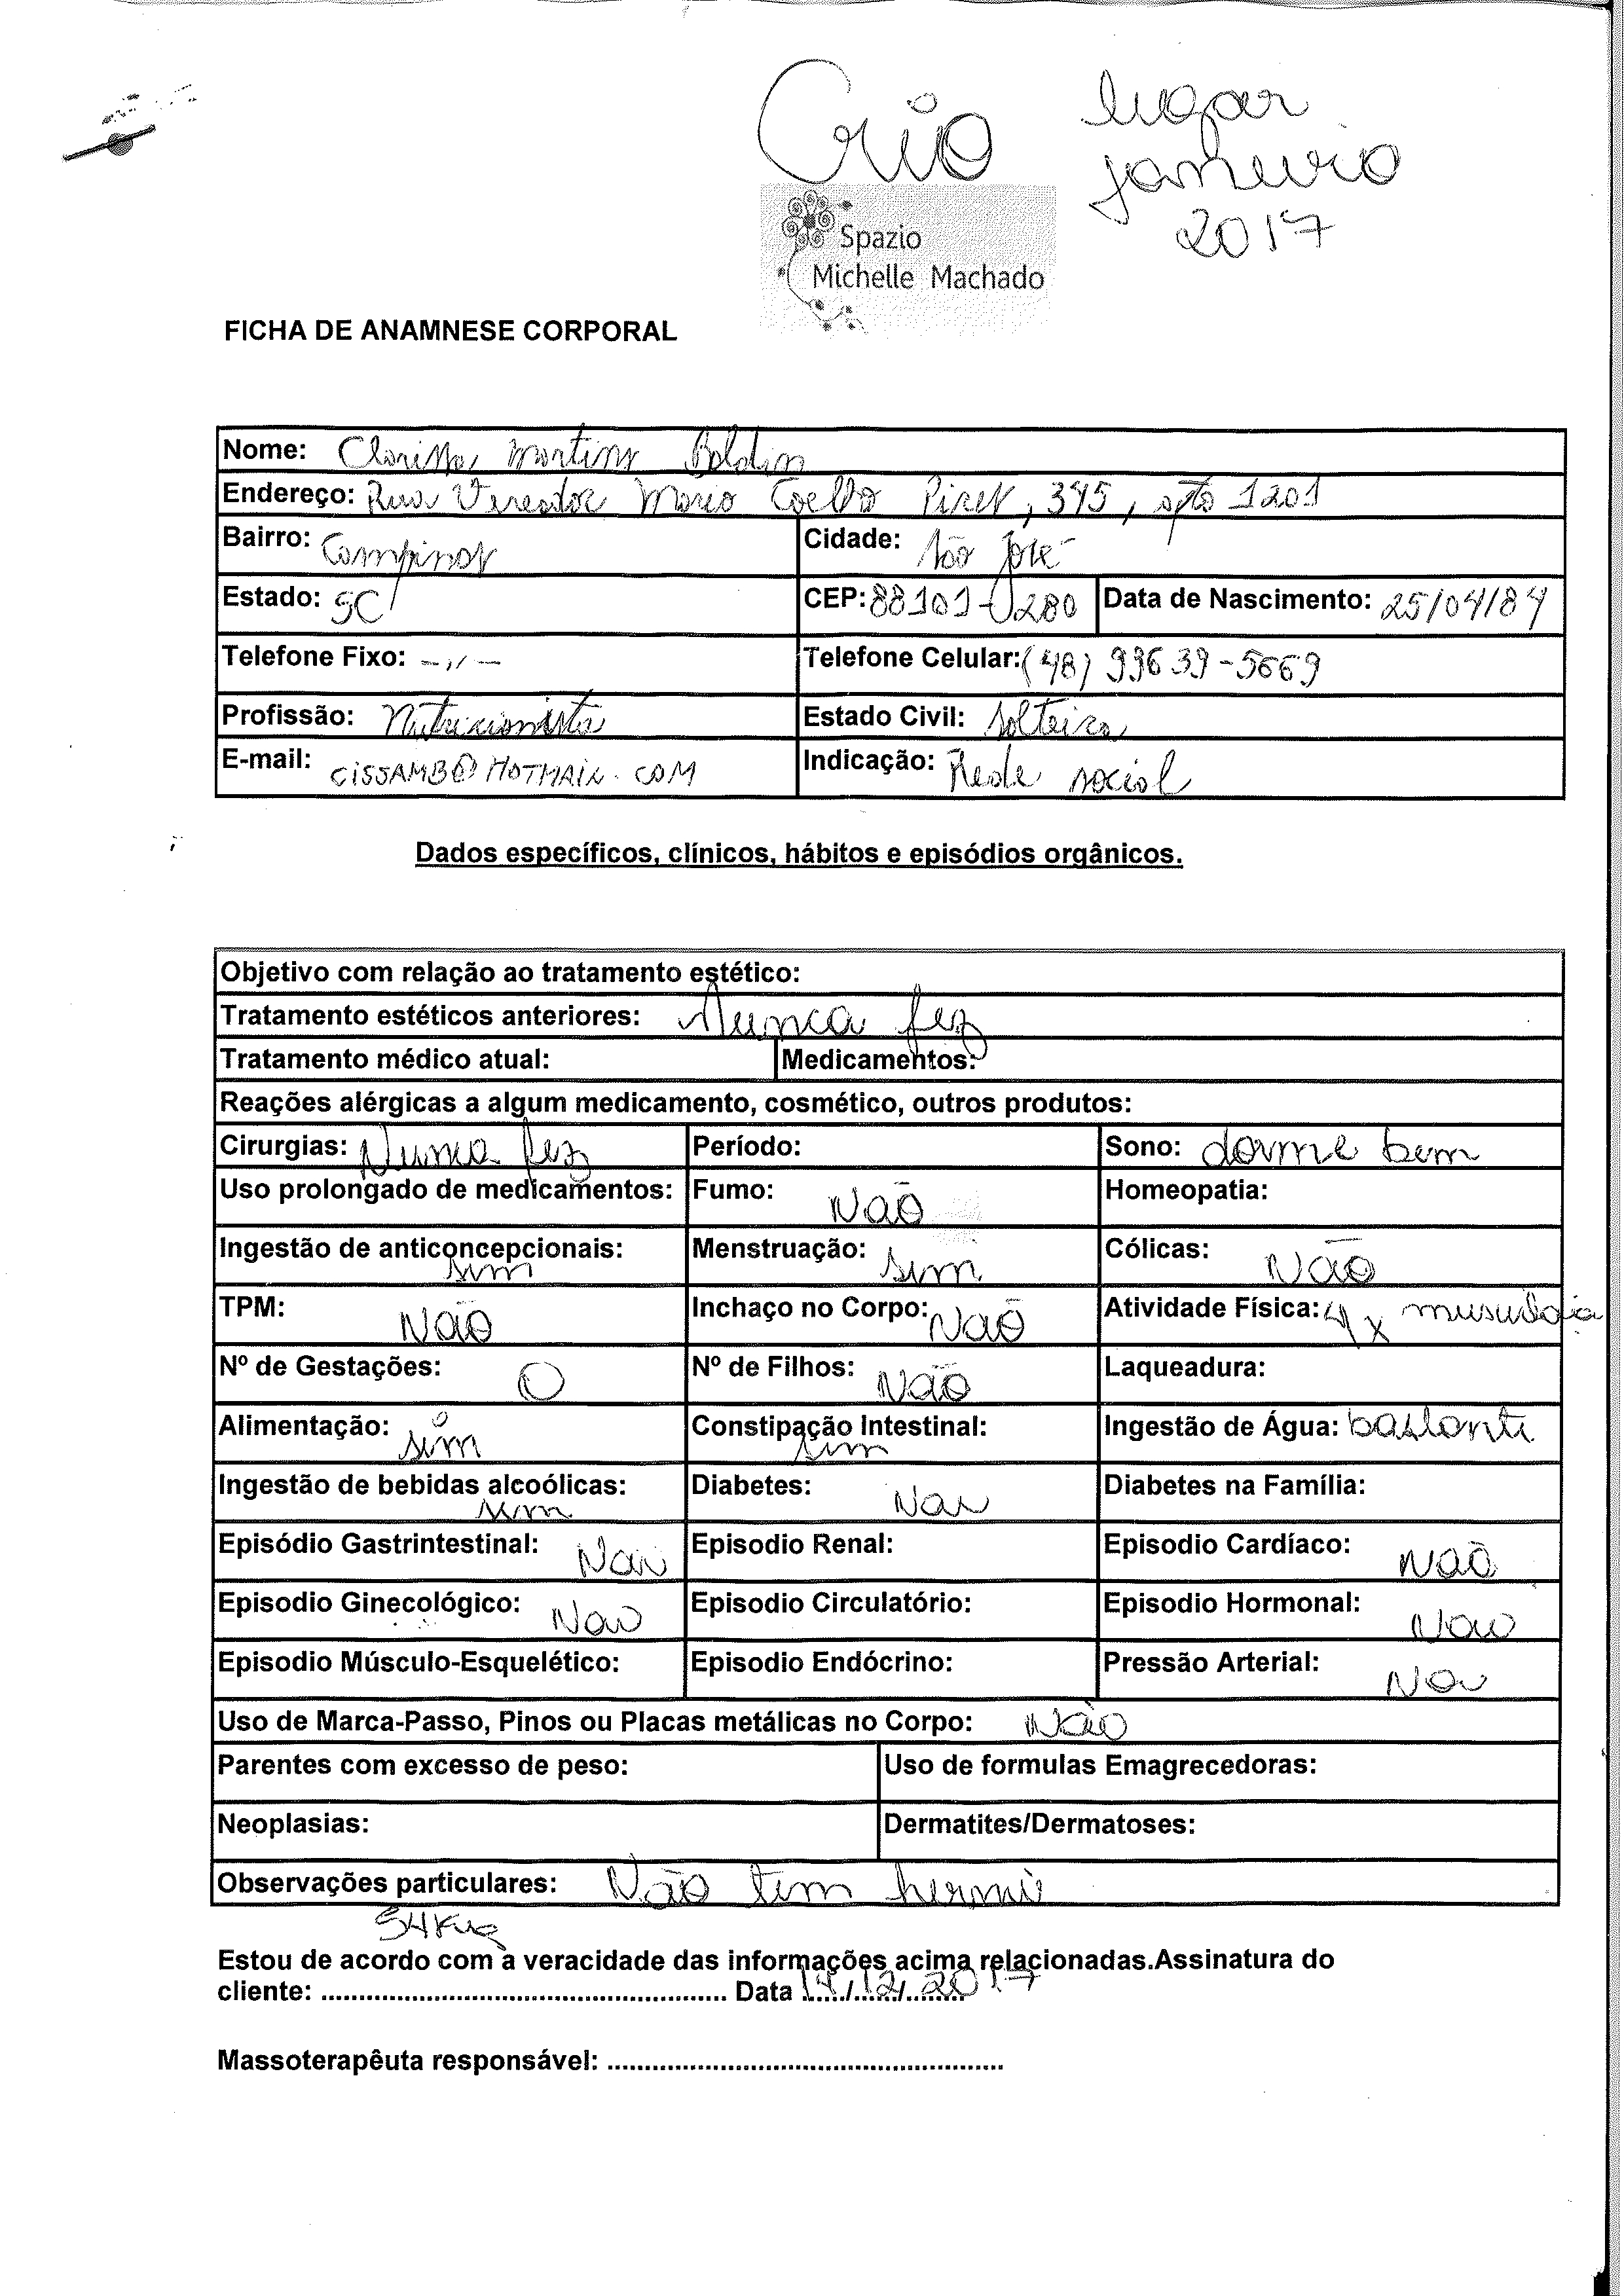 Crio
lugar
janeiro
2017
Spazio
Michelle Machado
FICHA DE ANAMNESE CORPORAL
Nome: Clarissa Martins Boldim
Endereço: Rua Vereador Mario Coelho Pires, 345, apto 1201
Bairro: Campinas Cidade: São José
Estado: SC CEP: 88101-280 Data de Nascimento: 25/04/84
Telefone Fixo: -,,- Telefone Celular: (48) 99639-5669
Profissão: Nutricionista Estado Civil: Solteira
E-mail: CISSAMB@HOTMAIL.COM Indicação: Rede social
Dados específicos, clínicos, hábitos e episódios orgânicos.
Objetivo com relação ao tratamento estético:
Tratamento estéticos anteriores: Nunca fez
Tratamento médico atual: Medicamentos:
Reações alérgicas a algum medicamento, cosmético, outros produtos:
Cirurgias: Nunca fez Período: Sono: dorme bem
Uso prolongado de medicamentos: Fumo: Não Homeopatia:
Ingestão de anticoncepcionais: sim Menstruação: sim Cólicas: Não
TPM: Não Inchaço no Corpo: Não Atividade Física: 4x
Nº de Gestações: 0 Nº de Filhos: Não Laqueadura:
Alimentação: sim Constipação Intestinal: sim Ingestão de Água: bastante
Ingestão de bebidas alcoólicas: sim Diabetes: Nao Diabetes na Família:
Episódio Gastrintestinal: Nao Episodio Renal: Episodio Cardíaco: Não
Episodio Ginecológico: Nao Episodio Circulatório: Episodio Hormonal: Nao
Episodio Músculo-Esquelético: Episodio Endócrino: Pressão Arterial: Nao
Uso de Marca-Passo, Pinos ou Placas metálicas no Corpo: Não
Parentes com excesso de peso: Uso de formulas Emagrecedoras:
Neoplasias: Dermatites/Dermatoses:
Observações particulares: Não tem hernia
54kg
Estou de acordo com a veracidade das informações acima relacionadas.Assinatura do
cliente: ........................................ Data 14/12/2017
Massoterapêuta responsável: ........................................